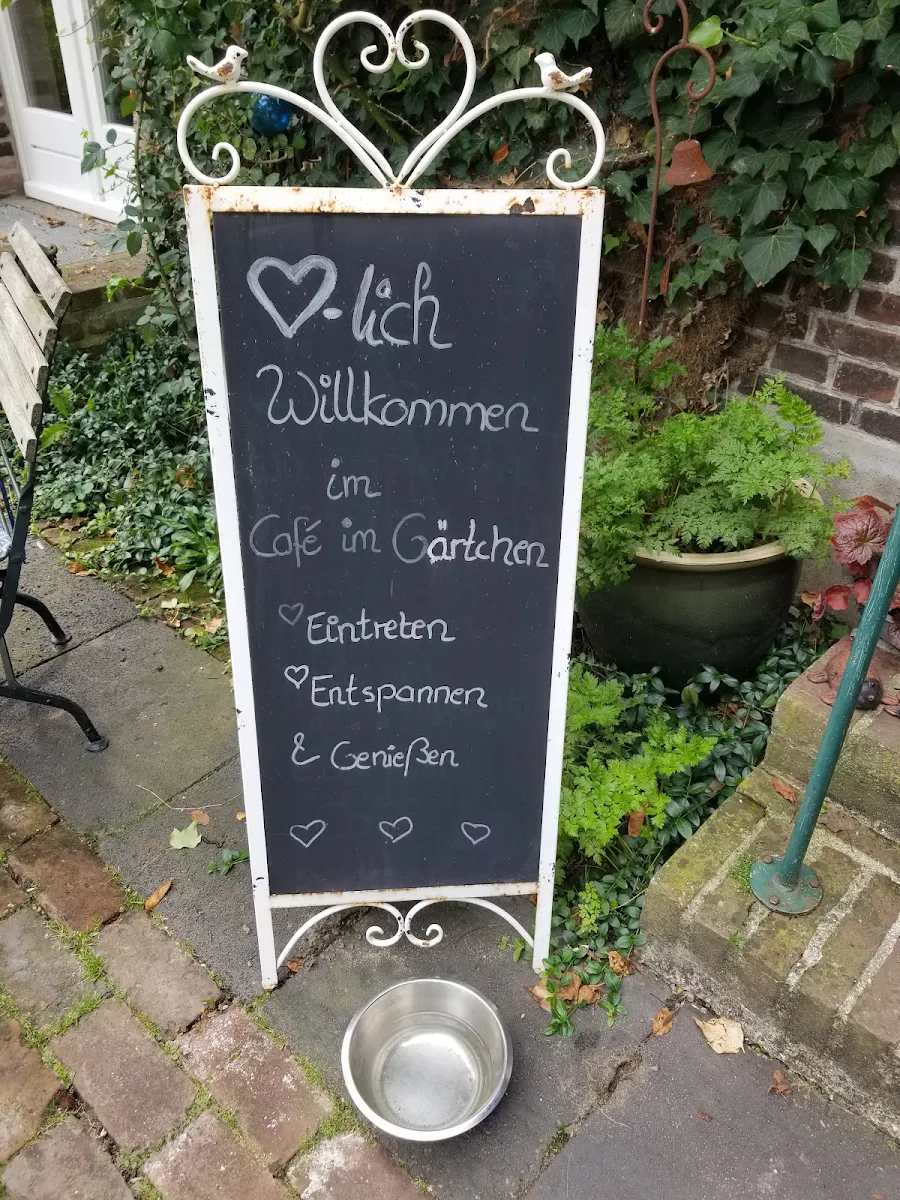 ♡-lich
Willkommen
im
Café im Gärtchen
♡ Eintreten
♡ Entspannen
& Genießen
♡ ♡ ♡